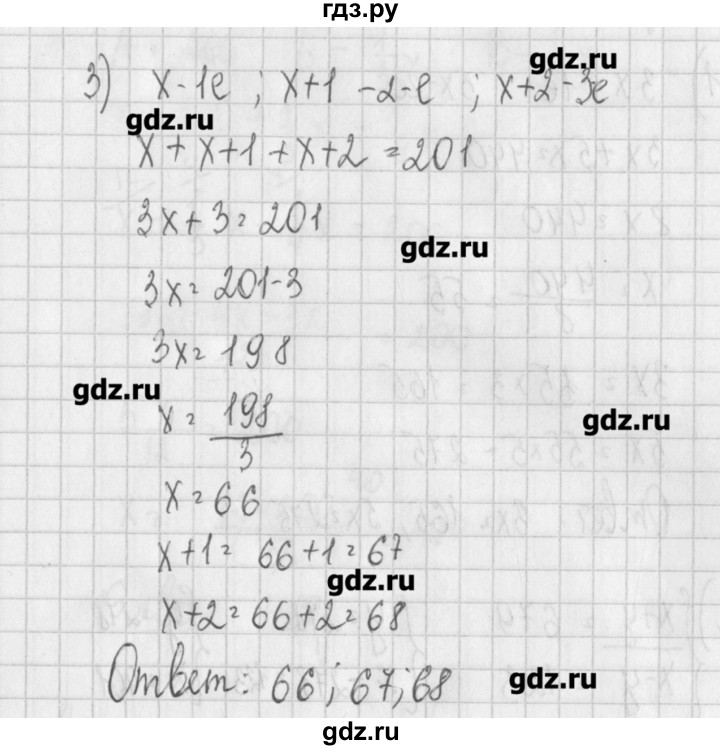 гдз.ру
gdz.ru
3) x - 1е ; x+1 - 2-е ; x+2 - 3е
gdz.ru
x + x+1 + x+2 = 201
3x + 3 = 201
gdz.ru
3x = 201-3
3x = 198
gdz.ru
x = 198/3
gdz.ru
x = 66
x+1 = 66+1 = 67
gdz.ru
x+2 = 66+2 = 68
Ответ: 66; 67; 68
gdz.ru
gdz.ru